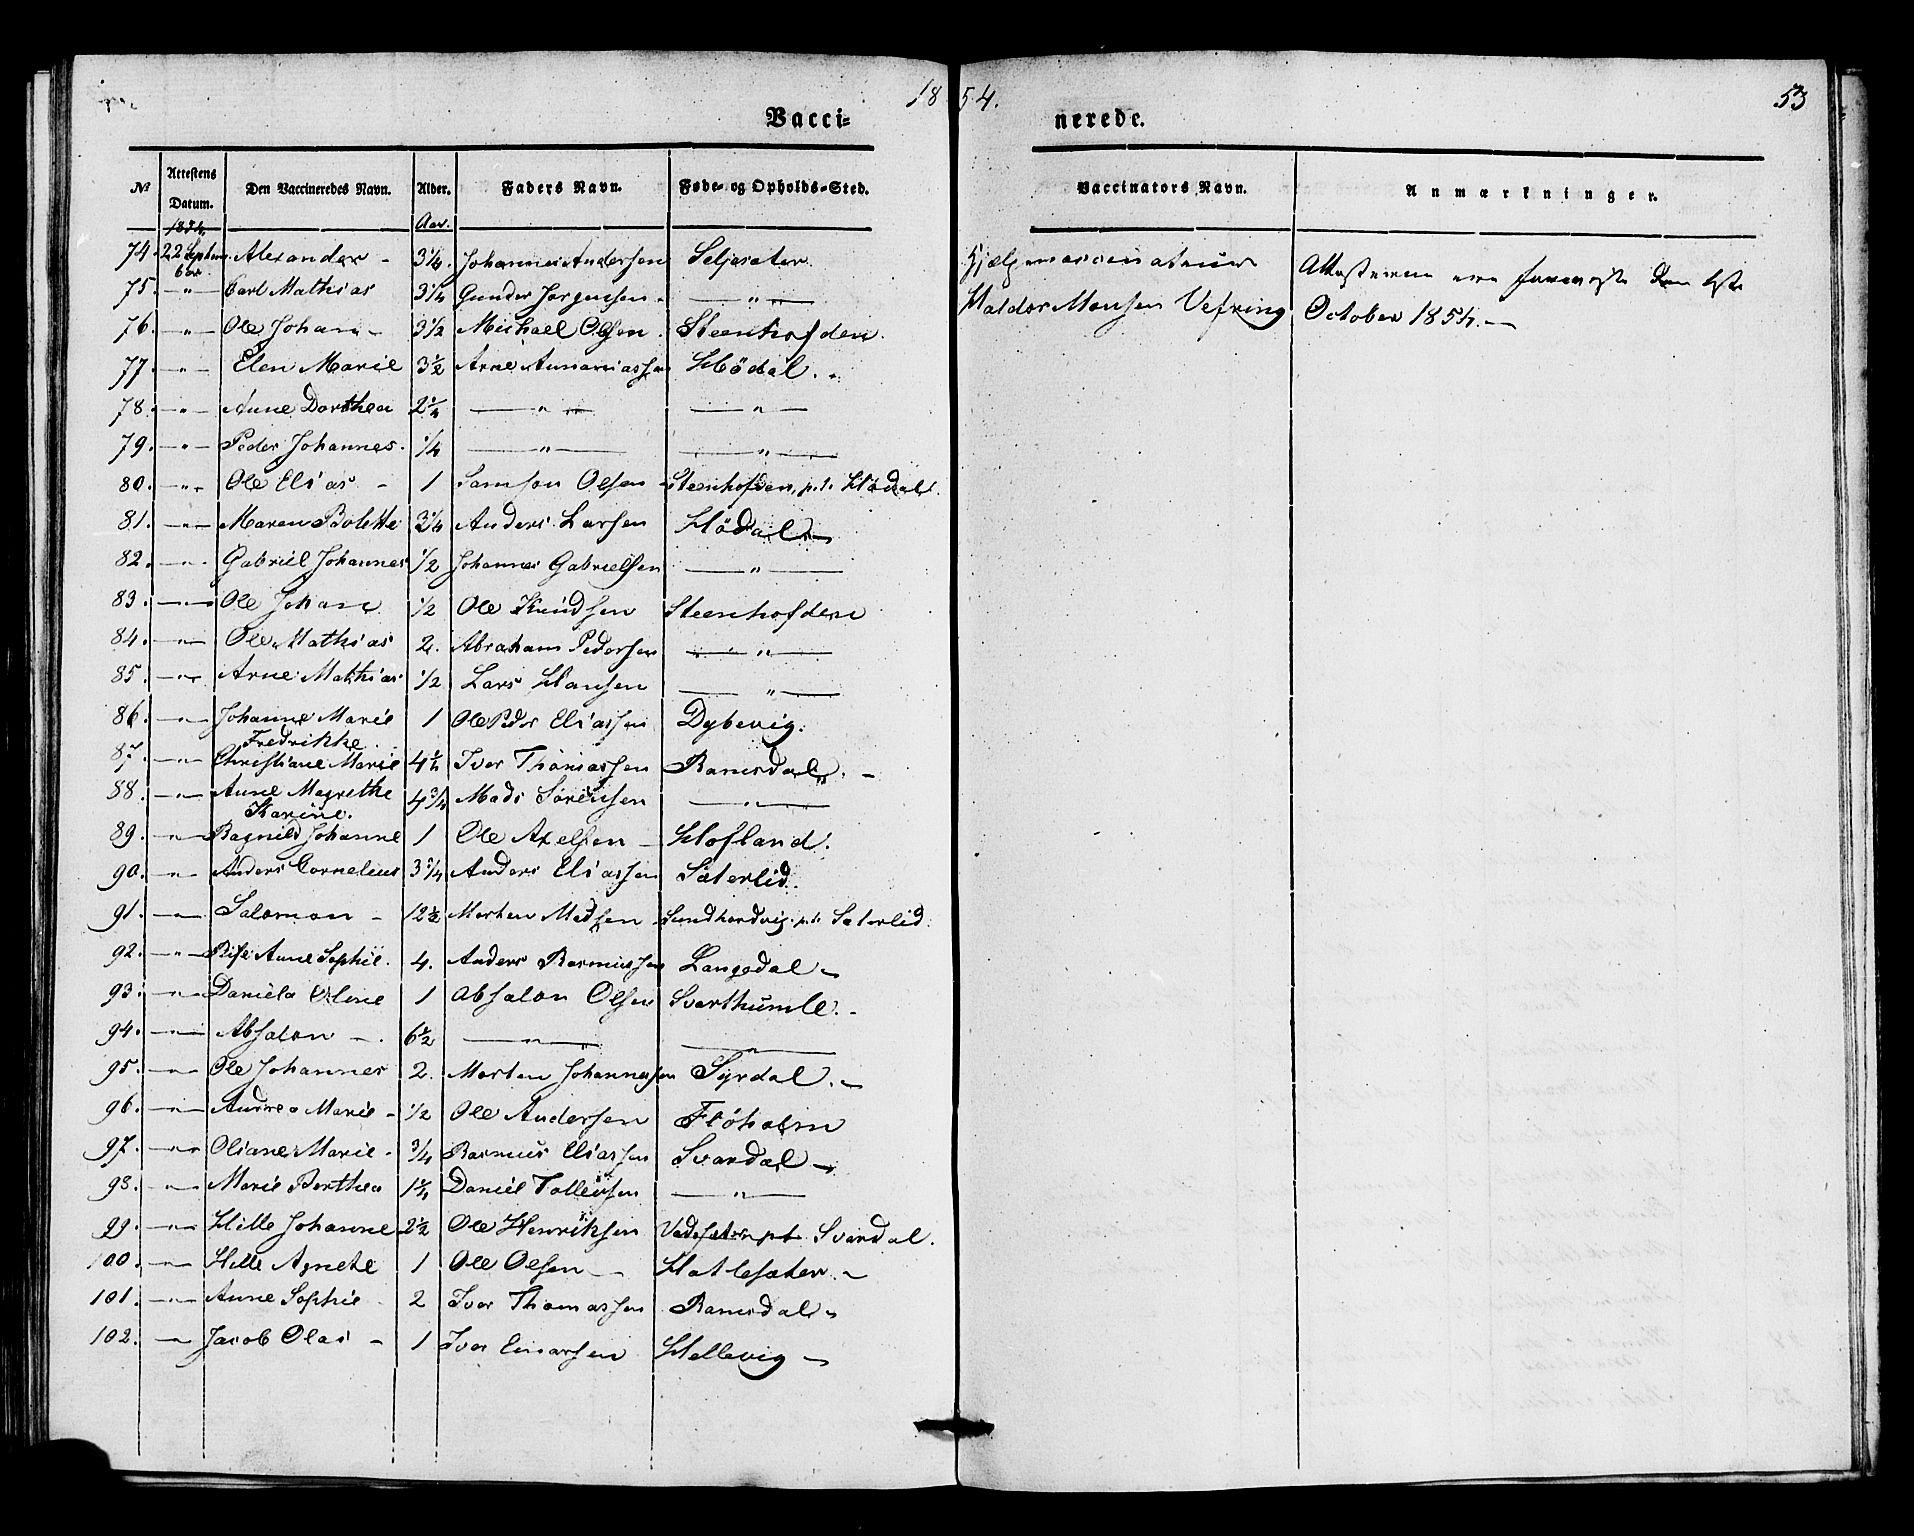 1854. 53
Vacci= nerede.
No Attestens Datum. Den Vaccineredes Navn. Alder. Faders Navn. Føde- og Opholds-Sted. Vaccinators Navn. Anmærkninger.
1854. Aar.
74. 22 Septem Alexander - 3 1/4. Johannes Andersen Seljesæter.
ber
75. -"- Carl Mathias 3 1/4 Gunder Jørgensen - -"-
76. -"- Ole Johan - 3 1/2 Michael Olsen. Steenhofden.
77. -"- Elen Marie 3 1/2 Arne Annaniassen Hødal.
78. -"- Anne Dorthea 2 1/4 -"- -"-
79. -"- Peder Johannes. 1/4 -"- -"-
80. -"- Ole Elias - 1 Samson Olsen - Steenhofden, p.t. Hødal.
81. -"- Maren Bolette 3/4 Anders Larsen Hødal -
82. -"- Gabriel Johannes 1/2 Johannes Gabrielsen -"-
83. -"- Ole Johan 1/2 Ole Knudsen Steenhofden
84. -"- Ole Mathias 2. Abraham Pedersen -"-
85. -"- Arne Mathias 1/2 Lars Hansen -"-
86. -"- Johanne Marie 1 Ole Peder Eliassen Dybevig.
Fredrikke
87. -"- Christiane Marie 4 1/2 Iver Thomassen Ramsdal. -
88. -"- Anne Magrethe 4 3/4 Mads Sørensen -"-
Karine.
89. -"- Ragnild Johanne 1 Ole Axelsen - Hofland.
90. -"- Anders Cornelius 3 3/4 Anders Eliassen Sæterlid.
91. -"- Salomon - 12 1/2 Morten Madsen Sundhordvig. p.t. Sæterlid.
92. -"- Anne Sophie. 4. Anders Rasmussen Langedal -
93. -"- Daniela Oline 1 Absalon Olsen Svarthumle. -
94. -"- Absalon -. 6 1/2 -"- -"-
95. -"- Ole Johannes 2. Morten Johannessen Syrdal. -
96. -"- Andrea Marie - 1/2 Ole Andersen Fløholm
97. -"- Oliane Marie - 3/4 Rasmus Eliassen Svardal -
98. -"- Marie Berthea 1 1/4 Daniel Tollevsen -"-
99. -"- Hille Johanne 2 1/2 Ole Henriksen Vadesæter p.t. Svardal.
100. -"- Hille Agnete 1 Ole Olsen - Hatlesæter. -
101. -"- Anne Sophie 2 Iver Thomassen Ramsdal -
102. -"- Jacob Olai - 1 Iver Einarsen Hellevig -
Hjælpevaccinateur
Haldor Monsen Vefring
Attesterne ere den 1ste
October 1854. -